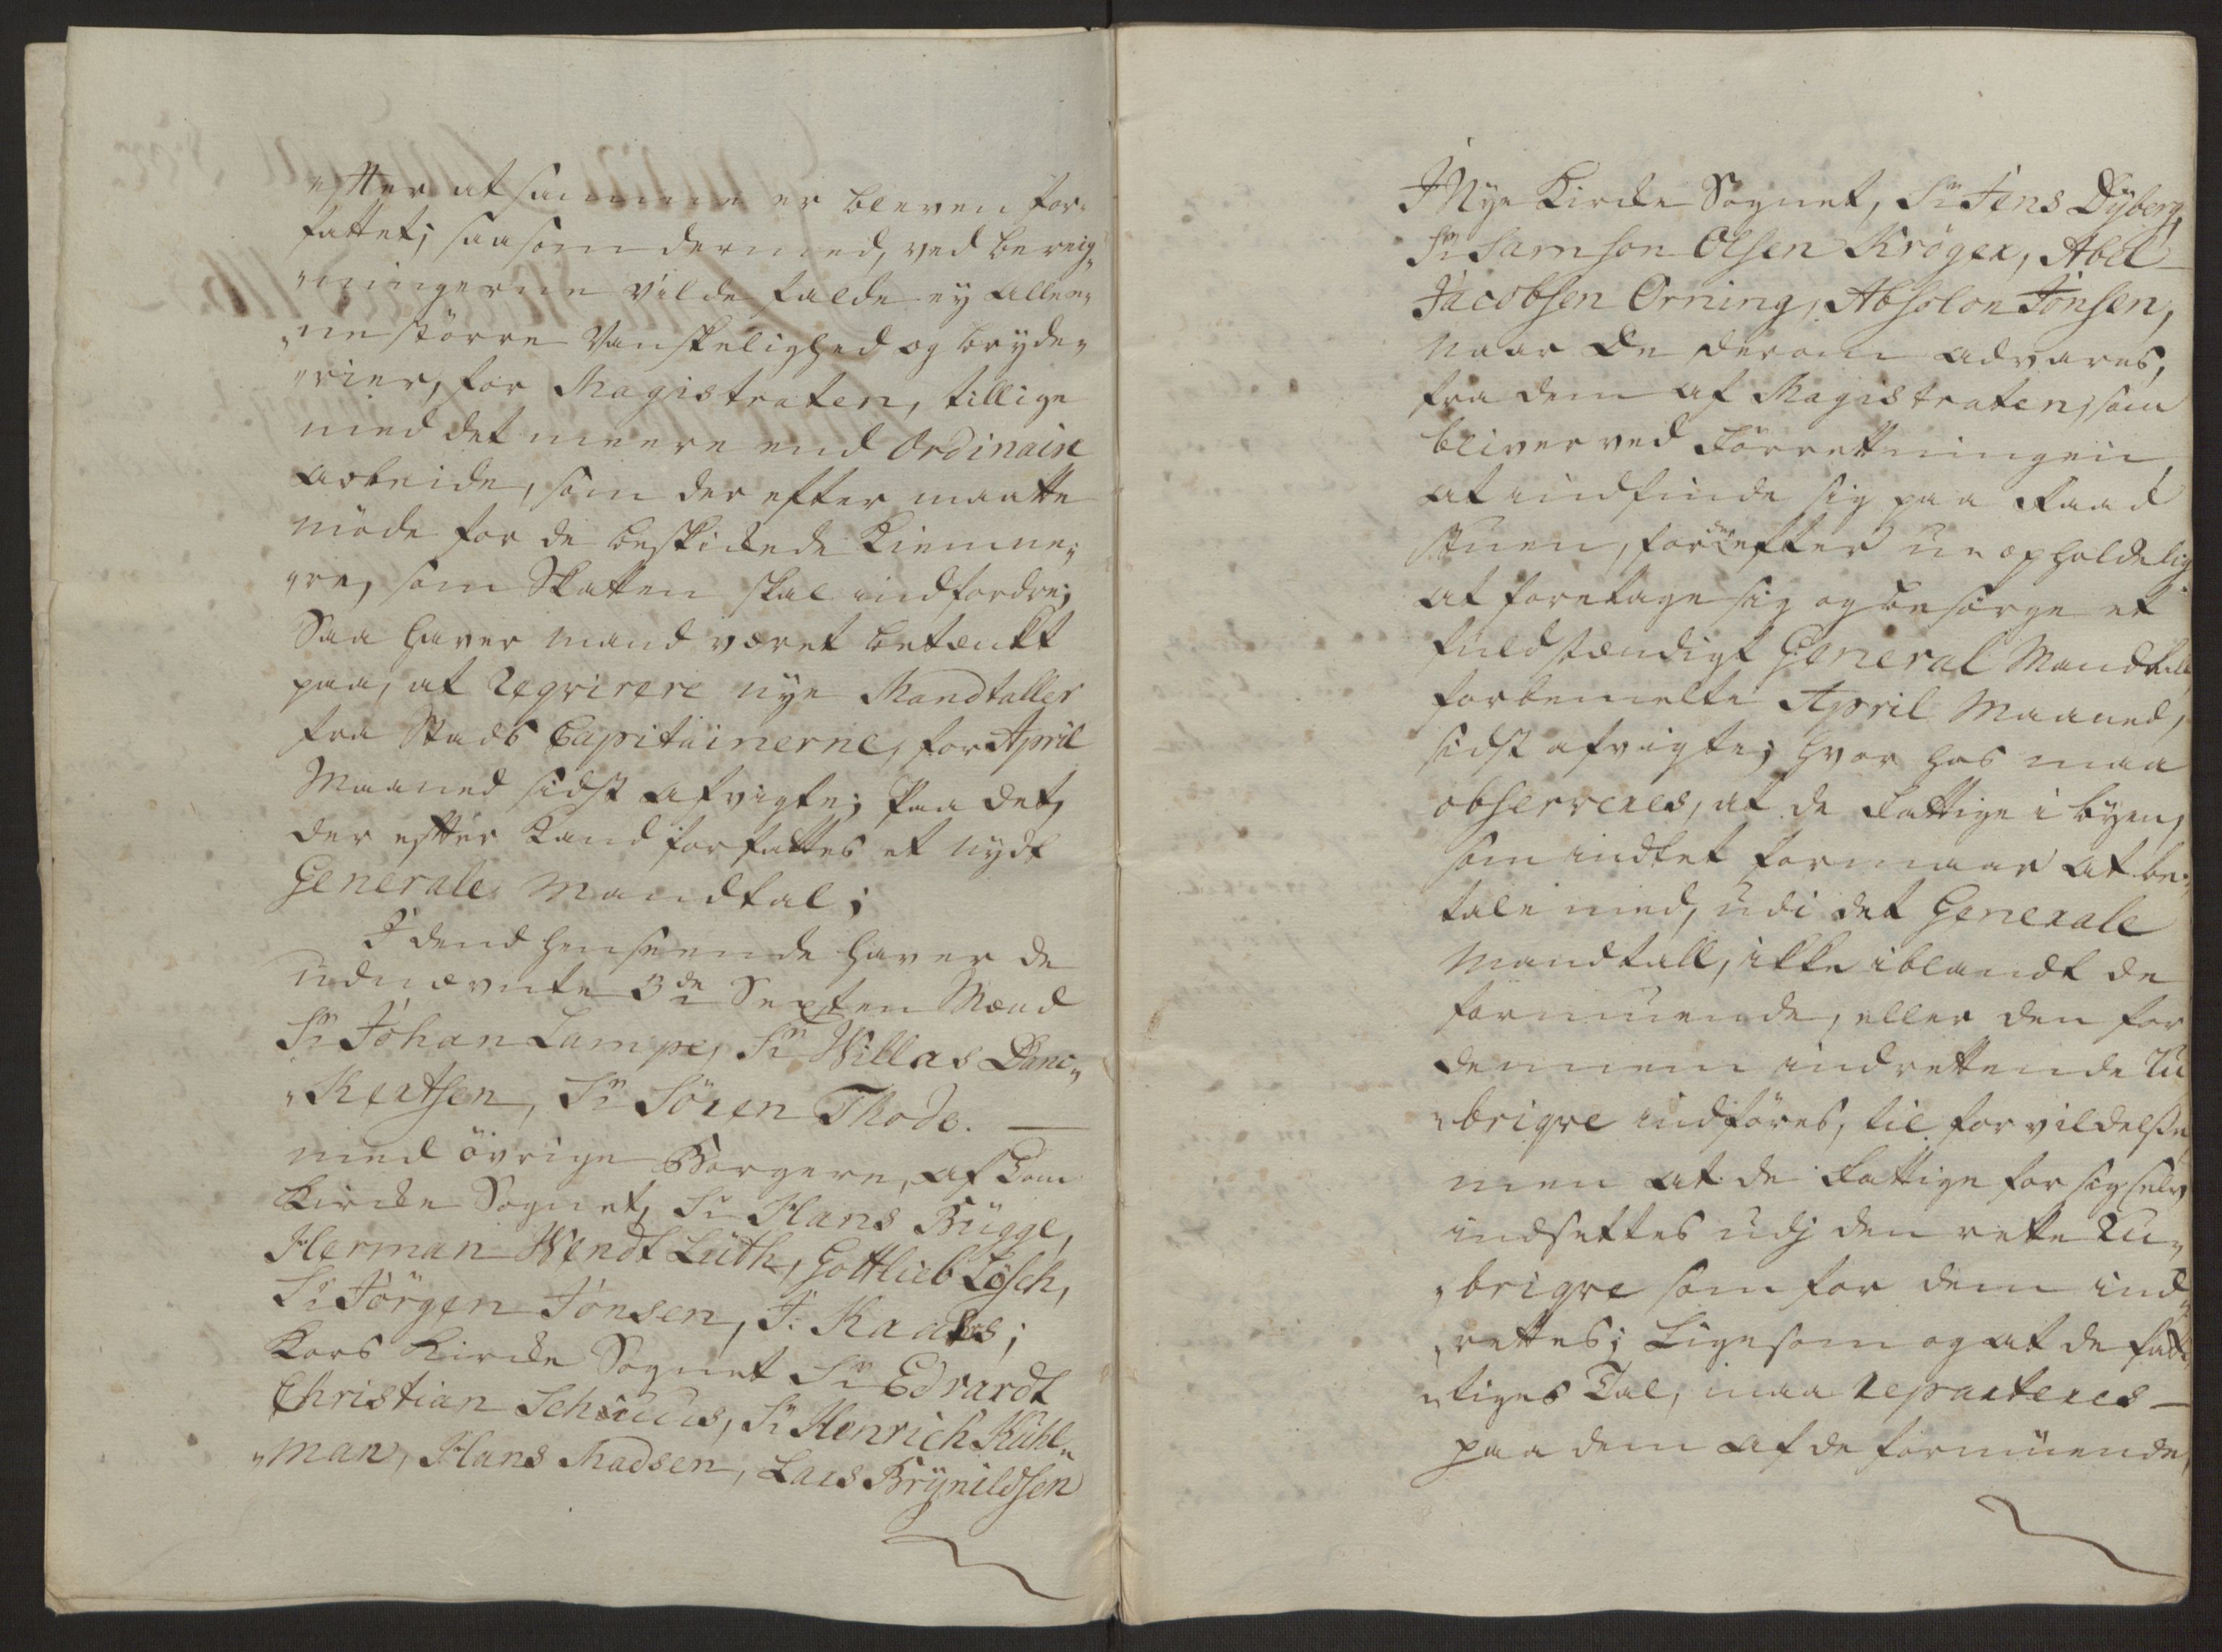 efter at samme er bleven for-
fattet; saasom dermed, ved bereig-
ningerne vilde falde ey alle-
ne större Vanskelighed og bryde-
rier, for Magistraten, tillige
med det meere end Ordinaire
arbeide, som der efter maatte
möde for de beskikede Kiemne-
re, som Skatten skal indfordre;
Saa haver mand været betænkt
paa, at reqvirere nye Mandtaller
fra Stads Capitainerne, for April
Maaned sidst afvigte; Paa det,
der efter kand forfattes et nydt
Generale Mandtal;
I dend henseende haver de
udnævnte 3de Sexten Mænd
Sr Johan Lampe, Sr Willas Danc-
kertsen, Sr Sören Thode. —
med övrige Borgere, af Dom
Kirke Sognet, Sr Hans Bügge,
Herman Wendt Lüth, Gottlieb Lösch,
Sr Jörgen Jonsen, J. Kaaes;
Kors Kirke Sognet Sr Edvardt
Christian Schiuus, Sr Henrich Kühl-
man, Hans Madsen, Lars Brynildsen
I Nye Kirke Sognet, Sr Jens Dyberg,
Sr Samson Olsen Kröger, Abel
Jacobsen Orning, Absolon Jonsen,
Naar de derom advares,
fra dem af Magistraten, som
bliver ved Forretningen,
at indfinde sig paa Raad
stuen, for der efter uopholdelig
at foretage sig og besörge et
fuldstændigt General Mandtall,
forbemelte April Maaned,
sidst afvigte; hvor hos maa
observeres, at de Fattige i byen,
som indtet formaar at be-
tale med, udi det Generale
Mandtall, ikke iblandt de
formuende, eller den for
dennem indrettende Ru
briqve indföres, til forvildelse,
men at de Fattige for sig selv
indsettes udj den rette Ru-
briqve som for dem ind-
rettes; Ligesom og at de fat-
tiges Tal, maa reparteres —
paa dem af de formuende,